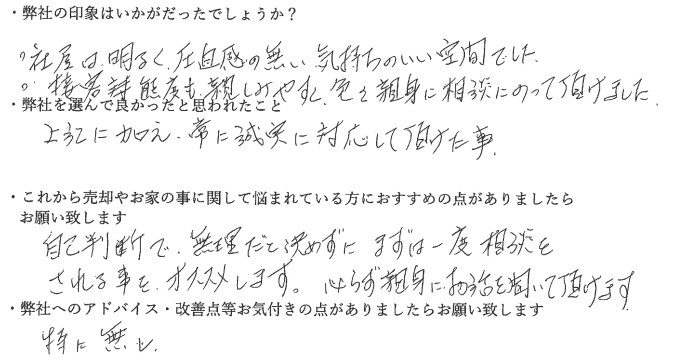 ・弊社の印象はいかがだったでしょうか？
社屋は明るく、圧迫感の無い気持ちのいい空間でした。
接客対態度も、親しみやすく、色々親身に相談にのって頂けました。
・弊社を選んで良かったと思われたこと
上記に加え、常に誠実に対応して頂けた事。
・これから売却やお家の事に関して悩まれている方におすすめの点がありましたら
お願い致します
自己判断で、無理だと決めずに まずは一度 相談を
される事を、オススメします。 必らず親身にお話を聞いて頂けます
・弊社へのアドバイス・改善点等お気付きの点がありましたらお願い致します
特に無し。